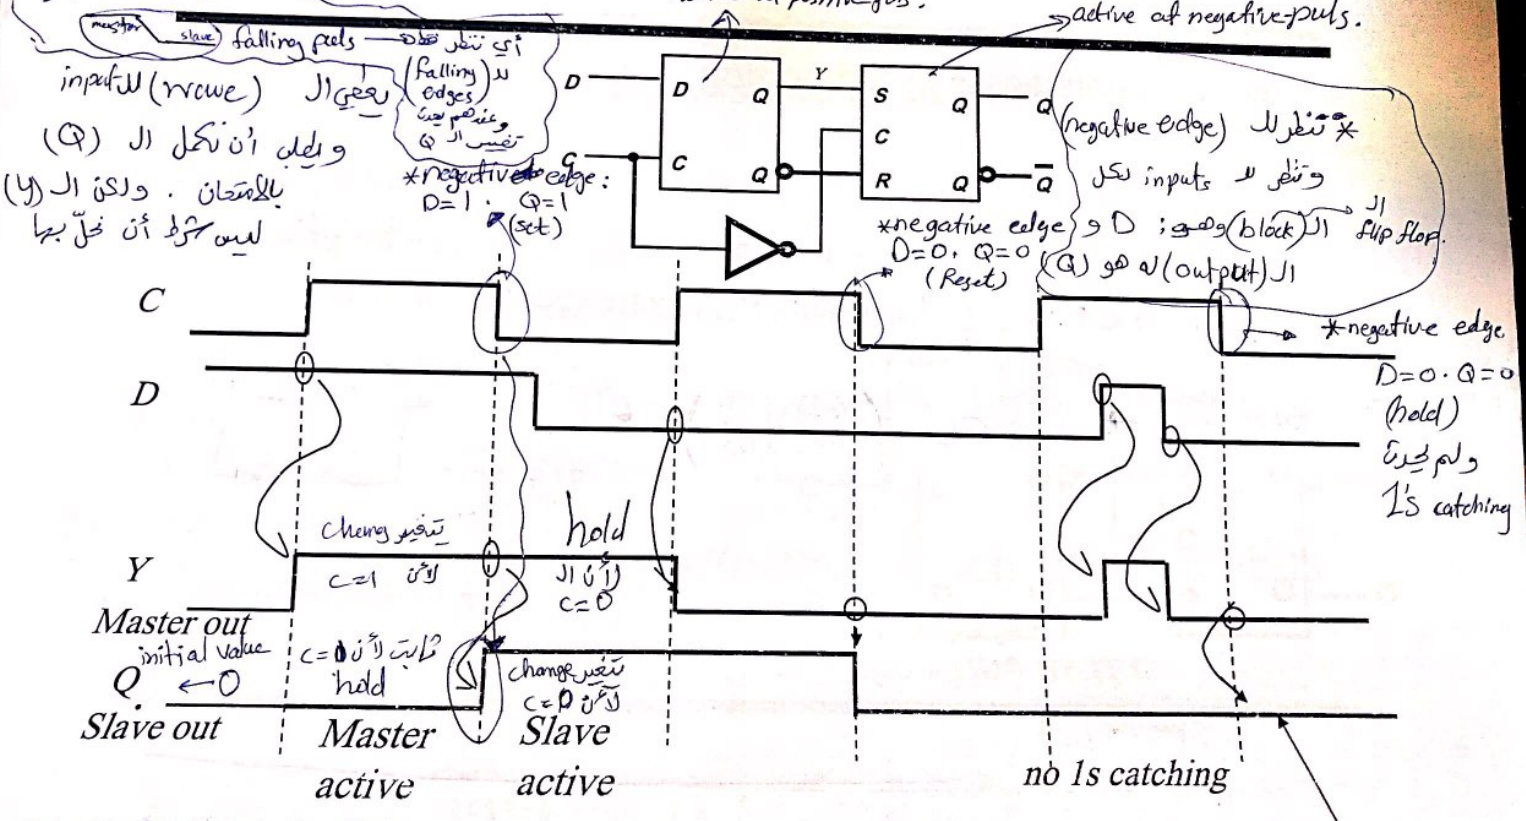 active at negative-puls.
master
slave
falling puls
أي ننظر فقط
لل (falling edges)
وعندهم يحدث
تغيير ال Q
يعطي ال (wave) لل input
ويطلب أن نكمل ال (Q)
بالامتحان . ولكن ال (Y)
ليس شرط أن نحلّ بها
*negative edge:
D=1 . Q=1
(set)
D
C
D
Q
C
Q
Y
S
Q
C
R
Q
Q
Q
* ننظر لل (negative edge)
وننظر لل inputs لكل
ال flip flop.
ال (block) وهو: D و
ال (output) له هو (Q)
*negative edge
D=0, Q=0
(Reset)
C
*negative edge
D=0 . Q=0
(hold)
ولم يحدث
1's catching
D
hold
تتغير
لأن c=1
لأن ال
c=0
Y
Master out
initial value
Q ← 0
Slave out
ثابت لأن
hold
change تتغير
لأن c=0
Master
active
Slave
active
no 1s catching